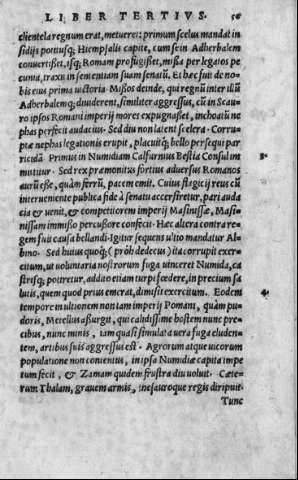 LIBER TERTIVS. 50
clientela regnum erat, metueret: primum scelus mandat in
sidijs potiusq; Hiempsalis capite, cum se in Adherbalem
conuertisset, isq; Romam profugisset, missa per legatos pe
cunia, traxit in sententiam suam senatũ. Et hæc fuit de no-
bis eius prima uictoria. Missos deinde, qui regnũ inter illũ
Adherbalemq; diuiderent, similiter aggressus, cũ in Scau-
ro ipsos Romani imperij mores expugnasset, inchoatũ ne
phas perfecit audacius. Sed diu non latent scelera. Corru-
ptæ nephas legationis erupit, placuitq; bello persequi par
ricidã. Primus in Numidiam Calfurnius Bestia Consul im
mittitur. Sed rex præmonitus fortius aduersus Romanos
aurũ esse, quàm ferrũ, pacem emit. Cuius flagicij reus cũ
interueniente publica fide à senatu accersiretur, pari auda
cia & uenit, & competitorem imperij Masinissæ, Masi-
nissam immisso percussore confecit. Hæc altera contra re-
gem fuit causa bellandi. Igitur sequens ultio mandatur Al-
bino. Sed huius quoq; (prôh dedecus) ita corrupit exer-
citum, ut uoluntaria nostrorum fuga uinceret Numida, ca
strisq; potiretur, addito etiam turpi fœdere, in precium sa
lutis, quem quod prius emerat, dimisit exercitum. Eodem
tempore in ultionem non tam imperij Romani, quàm pu-
doris, Metellus assurgit, qui calidissime hostem nunc pre-
cibus, nunc minis, iam quasi simulata uera fuga eluden-
tem, artibus suis aggressus est. Agrorum atque uicorum
populatione non contentus, in ipsa Numidiæ capita impe
tum fecit, & Zamam quidem frustra diu uoluit. Cæte-
rum Thalam, grauem armis, thesauroque regis diripuit.
Tunc
3.
4.